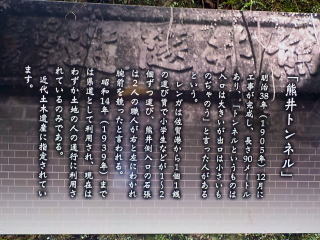 「熊井トンネル」
明治38年（1905年）12月に
工事が完成し、長さ90メートル
あり、「トンネルというものは
入口は大きいが出口は小さいも
のぢゃのう」と言った人がある
という。
レンガは佐賀港から1個1銭
の運び賃で小学生などが1～2
個ずつ運び、熊井側入口の石張
は2人の職人が右と左にわかれ
腕前を競ったと言われる。
昭和14年（1939年）まで
は県道として利用され、現在は
わずか土地の人の通行に利用さ
れているのみである。
近代土木遺産に指定されてい
ます。